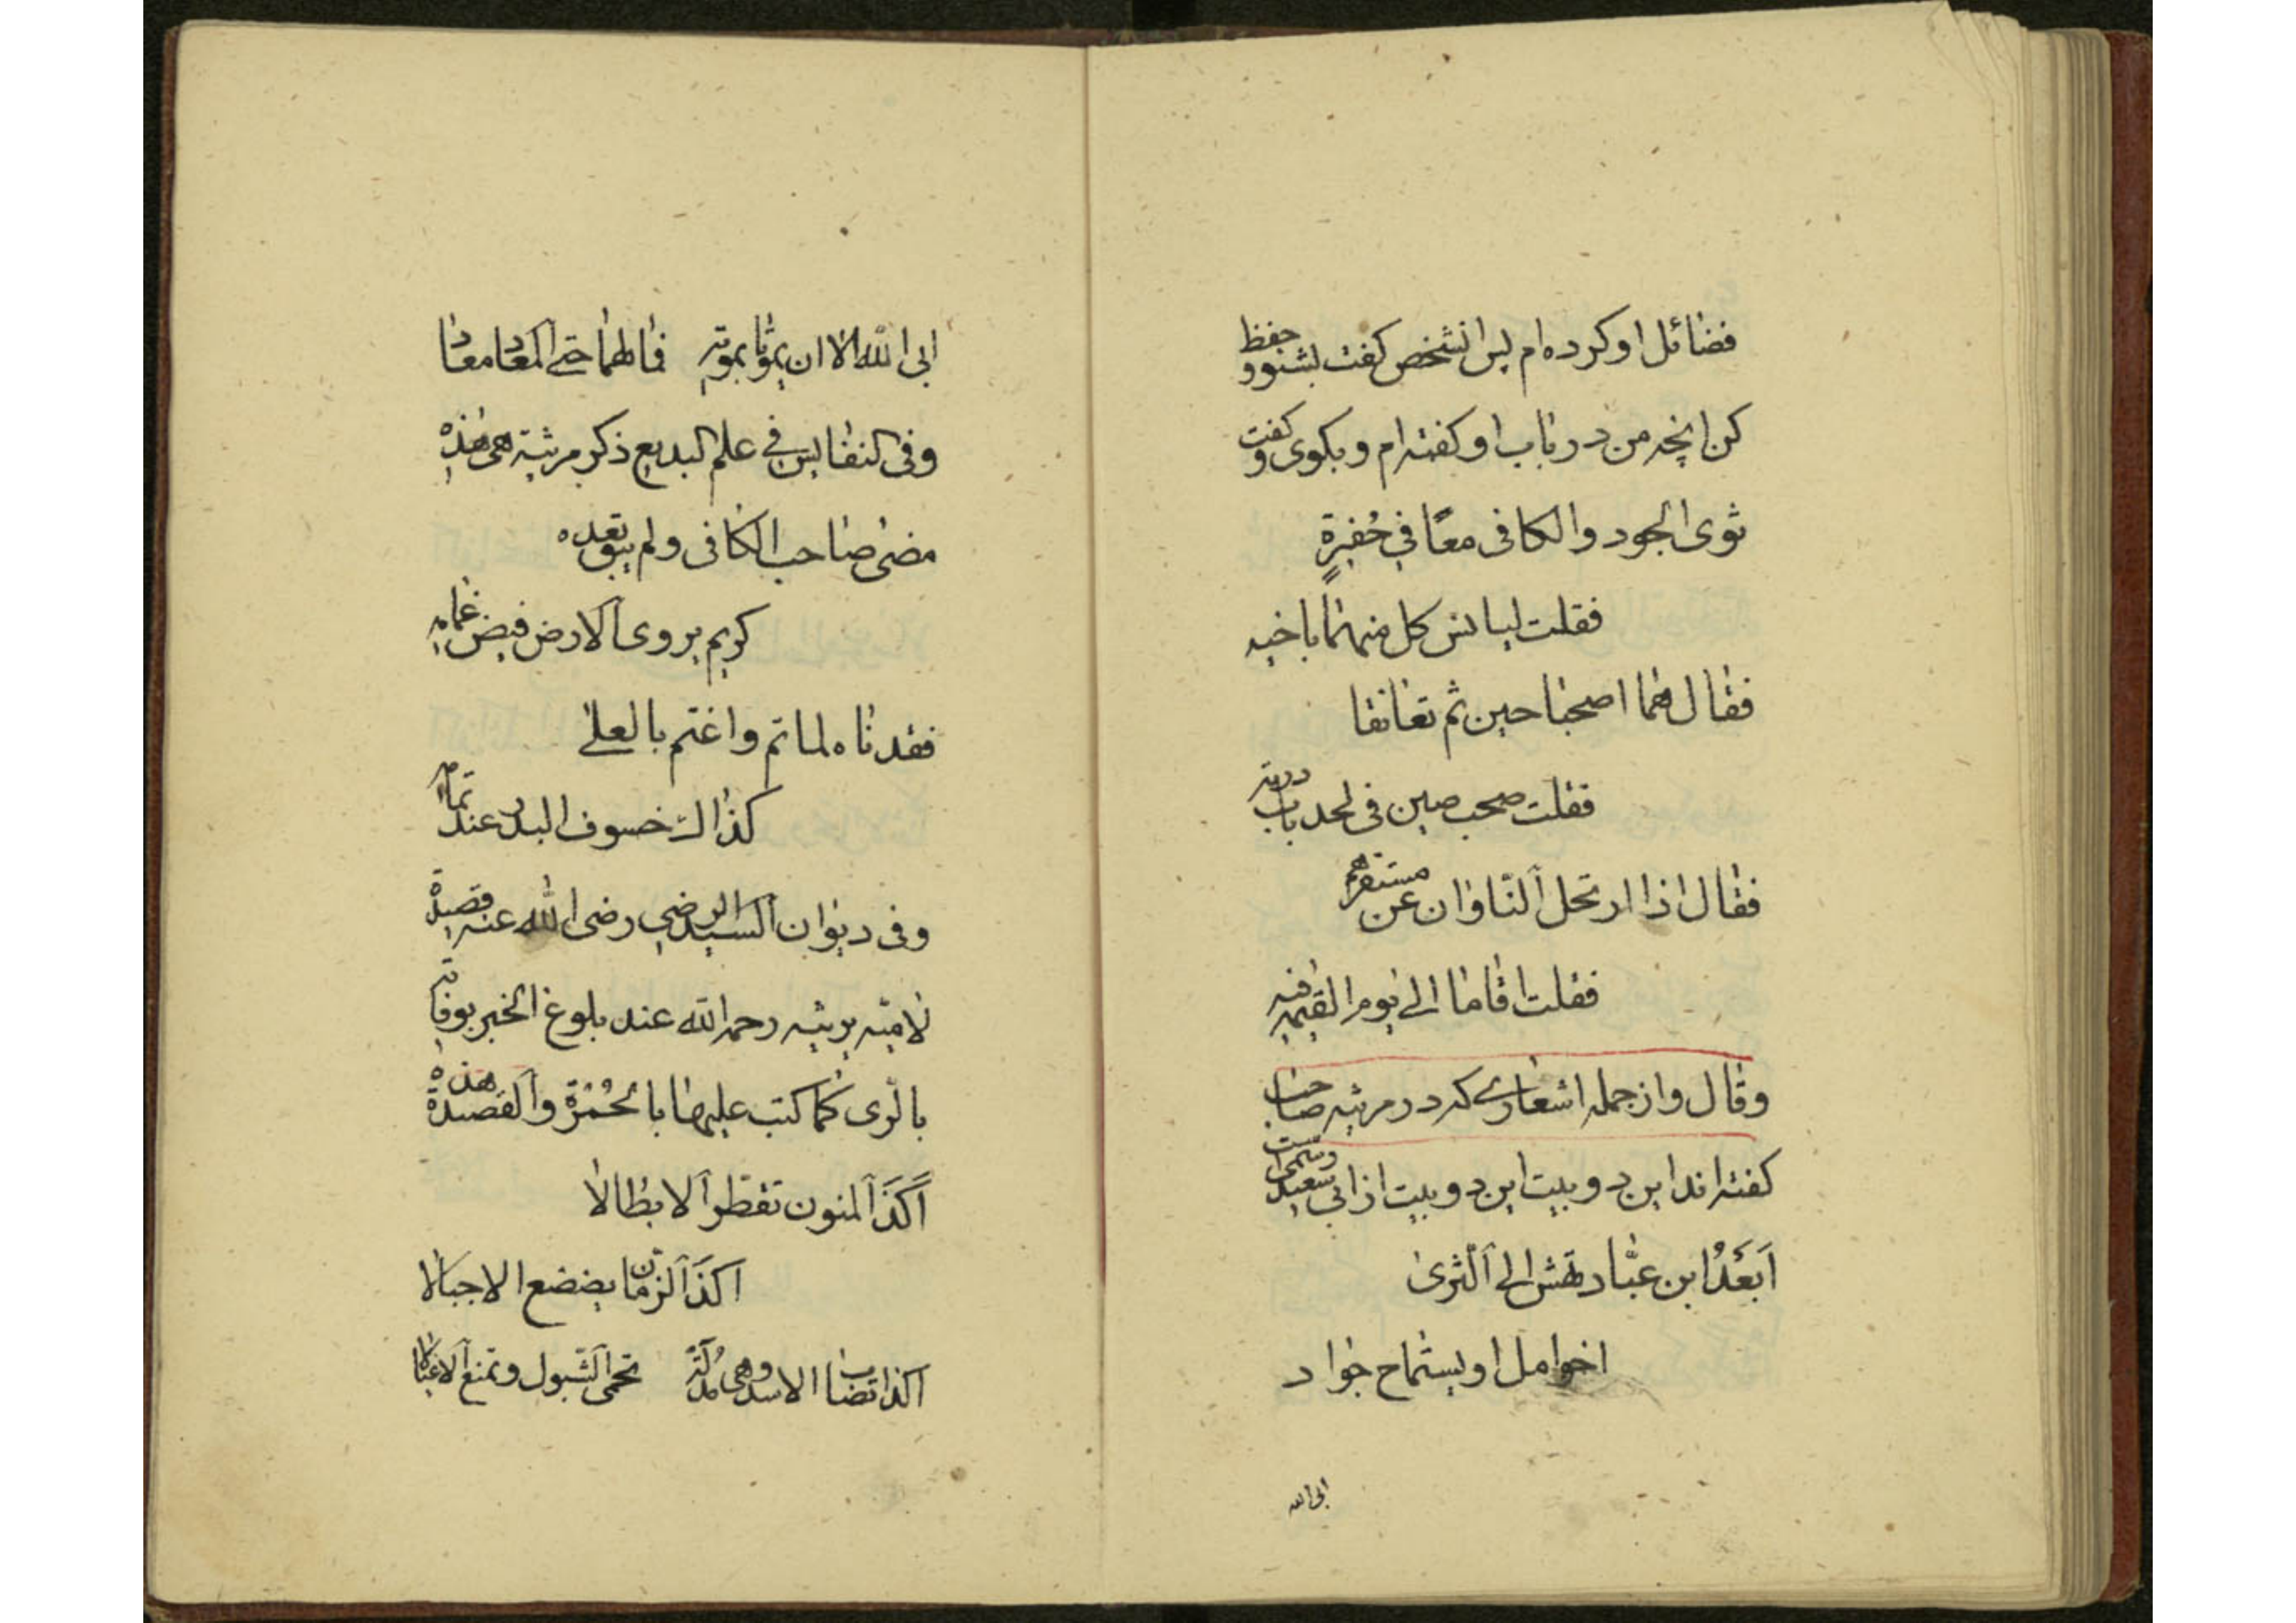 فضائل او كرده ام پس انشخص كفت بشنو و حفظ
كن انچه من در باب او كفته ام و بكوى و كفت
ثوى الجود والكافى معًا في حُفيرةٍ
فقلت ليانس كل منهما باخيه
فقال هما اصطحبا حين ثم تعانقا
فقلت ضجيعين فى لحد بباب دريه
فقال اذا ارتحل الثاوان عن مستقرهم
فقلت اقاما الى يوم القيمة فيه
وقال واز جمله اشعارے كه در مرثيه صاحب
كفته اند اين دو بيت اين دو بيت از ابي سعيد رستمى است
اَبَعْدَ ابن عبَّاد تهش الى الثرىٰ
اخو امل او يستماح جواد
ابى الله
ابى الله الا ان يموتا بموته فما لهما حتى المعاد معاد
وفى النفايس في علم البديع ذكر مرثيته هى هذه
مضى صاحب الكافى ولم يبق بعده
كريم يروى الارض فيض غمامه
فقدناه لما تم واغتم بالعلى
كذاك خسوف البدر عند تمامه
وفى ديوان السيد الرضي رضى الله عنه قصيدة
لاميّه يرثيه رحمه الله عند بلوغ الخبر بوفاته
بالرى كما كتب عليها بالحُمْرَة والقصيدة هذه
اَكَذَا المنون تقطر الابطالا
اكذَا الزمان يضضع الاجبالا
اكذا تصاب الاسد وهى مُدلّة تحمى الشبول وتمنع الاغيالا